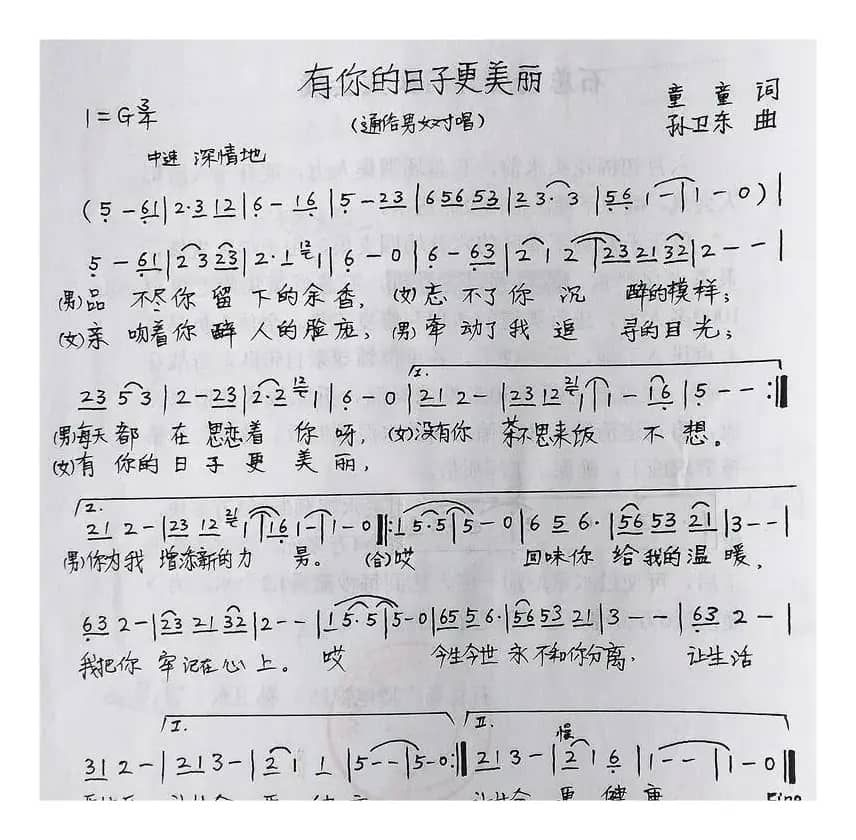 有你的日子更美丽
1=G 3/4
(通俗男女对唱)
童童 词
孙卫东 曲
中速 深情地
(5 - 61 | 2·3 12 | 6 - 16 | 5 - 23 | 6 56 53 | 23· 3 | 56 1 - | 1 - 0)
5 - 61 | 2 3 23 | 2· 1 12 1 | 6 - 0 | 6 - 63 | 2 1 2 | 23 21 32 | 2 - - |
(男)品 不尽你 留 下的余香, (女)忘 不了你 沉 醉的模样;
(女)亲 吻着你醉 人的脸庞; (男)牵 动了我 追 寻的目光;
23 5 3 | 2 - 23 | 2· 2 12 1 | 6 - 0 | 1. 21 2 - | 23 12 21 1 | 1 - 16 | 5 - - :‖
(男)每天都 在 思恋着 你呀, (女)没有你 茶不思来饭 不 想。
(女)有 你的日子更 美 丽,
2. 21 2 - | 23 12 21 1 | 1 16 1 - | 1 - 0 ‖: 1 5· 5 | 5 - 0 | 6 5 6· | 56 53 21 | 3 - - |
(男)你为我 增添新的力 男。 (合)哎 回味你 给我的温 暖,
63 2 - | 23 21 32 | 2 - - | 1 5· 5 | 5 - 0 | 65 5 6· | 56 53 21 | 3 - - | 63 2 - |
我把你 牢记在心 上。 哎 今生今世 永不和你分离, 让生活
31 2 - | I. 21 3 - | 2 1 1 | 5 - - | 5 - 0 :‖ II. 21 3 - | 慢 2 1 6 | 1 - - | 1 - 0 ‖
更 健 康
Fine